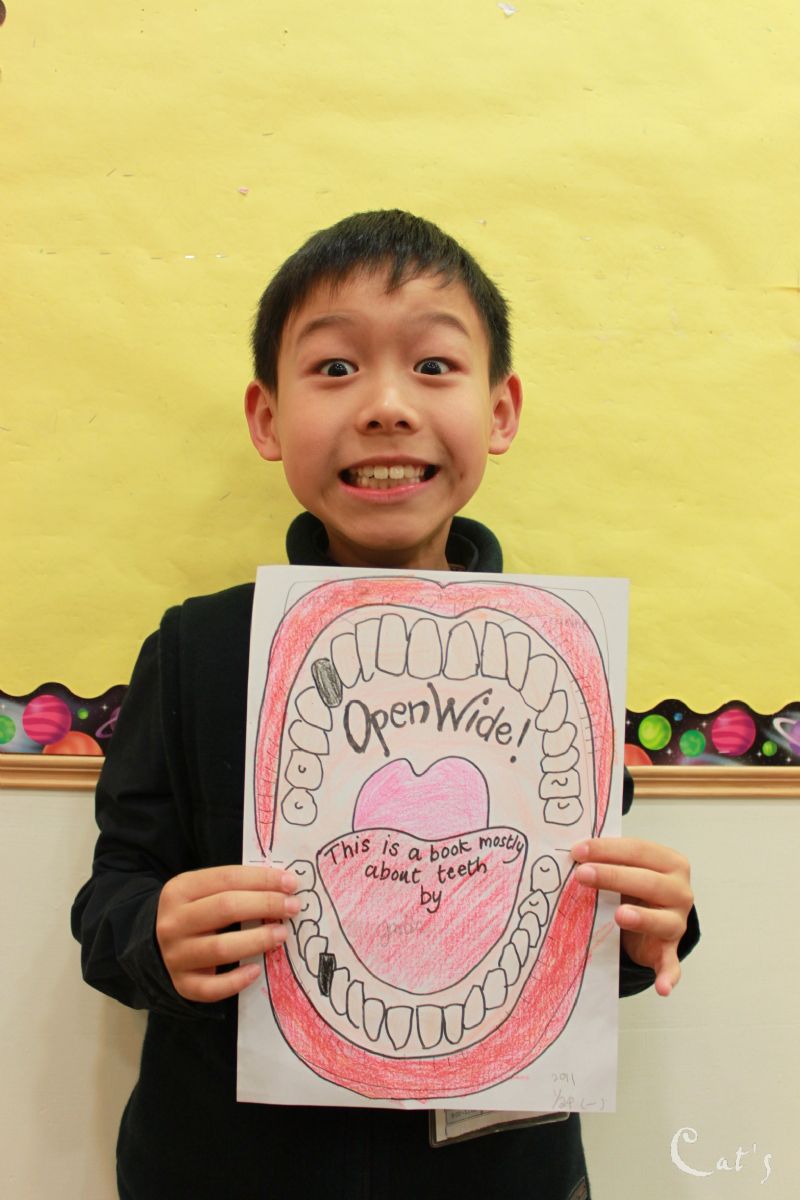 Open Wide!
This is a book mostly
about teeth
by
1/28 (一)
Cat's